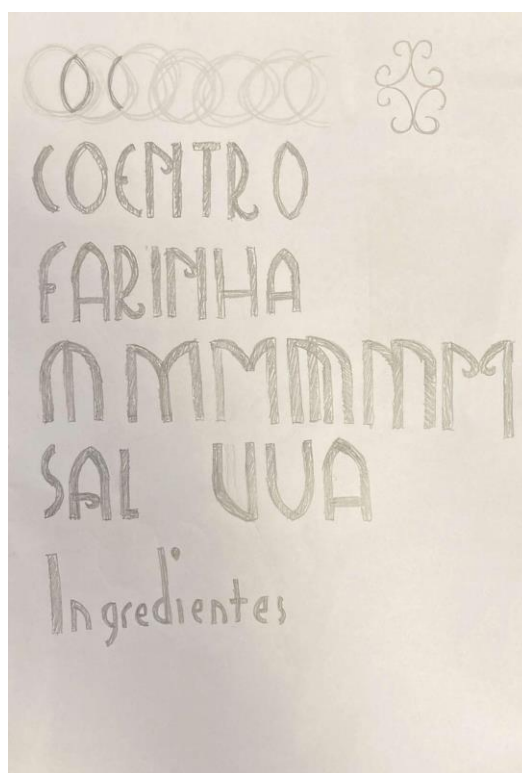 COENTRO
FARINHA
M M M M M M M
SAL UVA
Ingredientes